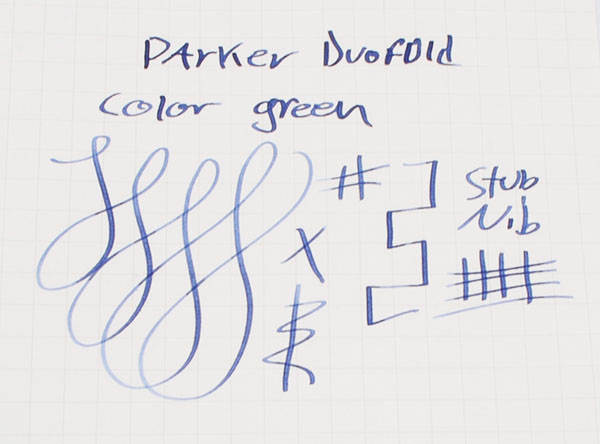 Parker Duofold
Color green
#
Stub
Nib
x